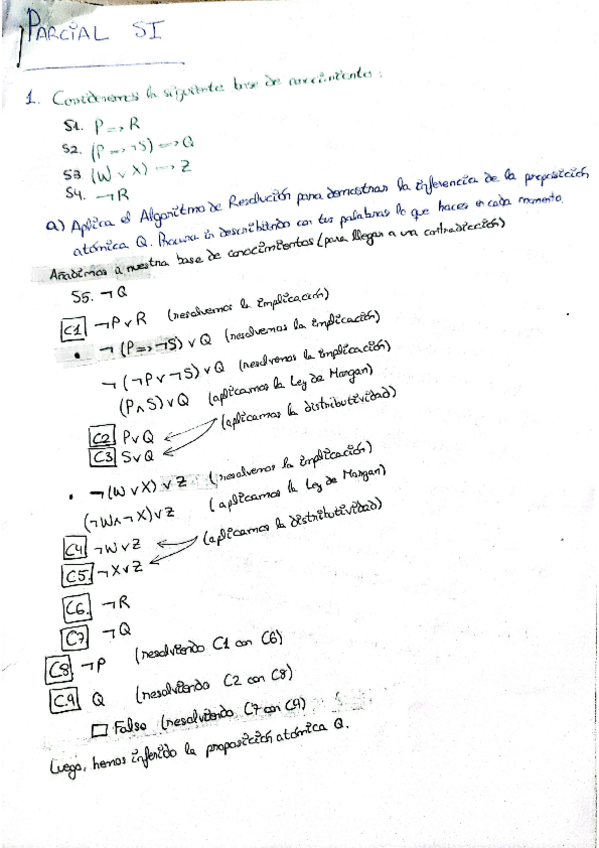 PARCIAL SI
1. Consideremos la siguiente base de conocimiento:
S1. P => R
S2. (P => ¬S) => Q
S3 (W ∨ X) => Z
S4. ¬R
a) Aplica el Algoritmo de Resolución para demostrar la inferencia de la proposición
atómica Q. Procura ir describiendo con tus palabras lo que haces en cada momento.
Añadimos a nuestra base de conocimientos (para llegar a una contradicción)
S5. ¬Q
C1 ¬P∨R (resolvemos la implicación)
• ¬(P=>¬S)∨Q (resolvemos la implicación)
¬(¬P∨¬S)∨Q (resolvemos la implicación)
(P∧S)∨Q (aplicamos la Ley de Morgan)
C2 P∨Q (aplicamos la distributividad)
C3 S∨Q
• ¬(W∨X)∨Z (resolvemos la implicación)
(¬W∧¬X)∨Z (aplicamos la Ley de Morgan)
C4 ¬W∨Z (aplicamos la distributividad)
C5. ¬X∨Z
C6. ¬R
C7 ¬Q
C8 ¬P (resolviendo C1 con C6)
C9 Q (resolviendo C2 con C8)
□ Falso (resolviendo C7 con C9)
Luego, hemos inferido la proposición atómica Q.